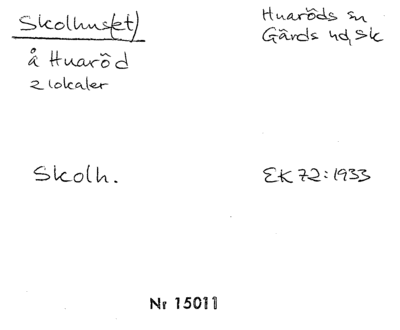 Skolhus(et)
å Huaröd
2 lokaler
Huaröds sn
Gärds hd, Sk
Skolh.
EK 72:1933
Nr 15011